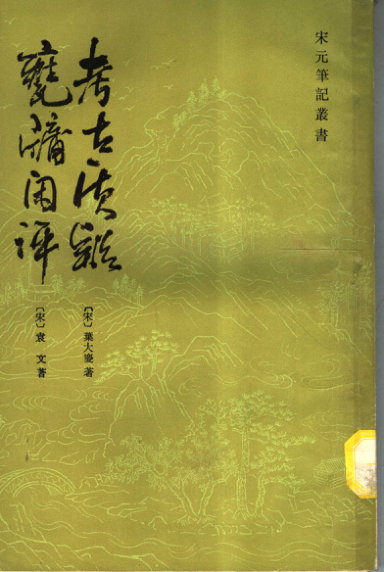 宋元筆記叢書
考古質疑
〔宋〕葉大慶著
甕牖閒評
〔宋〕袁文著